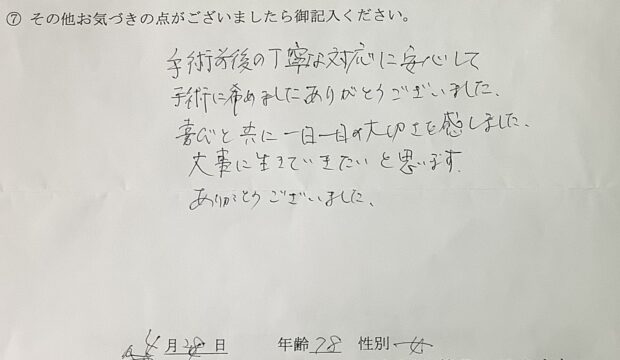 ⑦ その他お気づきの点がございましたら御記入ください。
手術前後の丁寧な対応に安心して
手術に希めましたありがとうございました、
喜びと共に一日一日の大切さを感じました、
大事に生きていきたいと思います.
ありがとうございました、
4月28日 年齢 78 性別 女